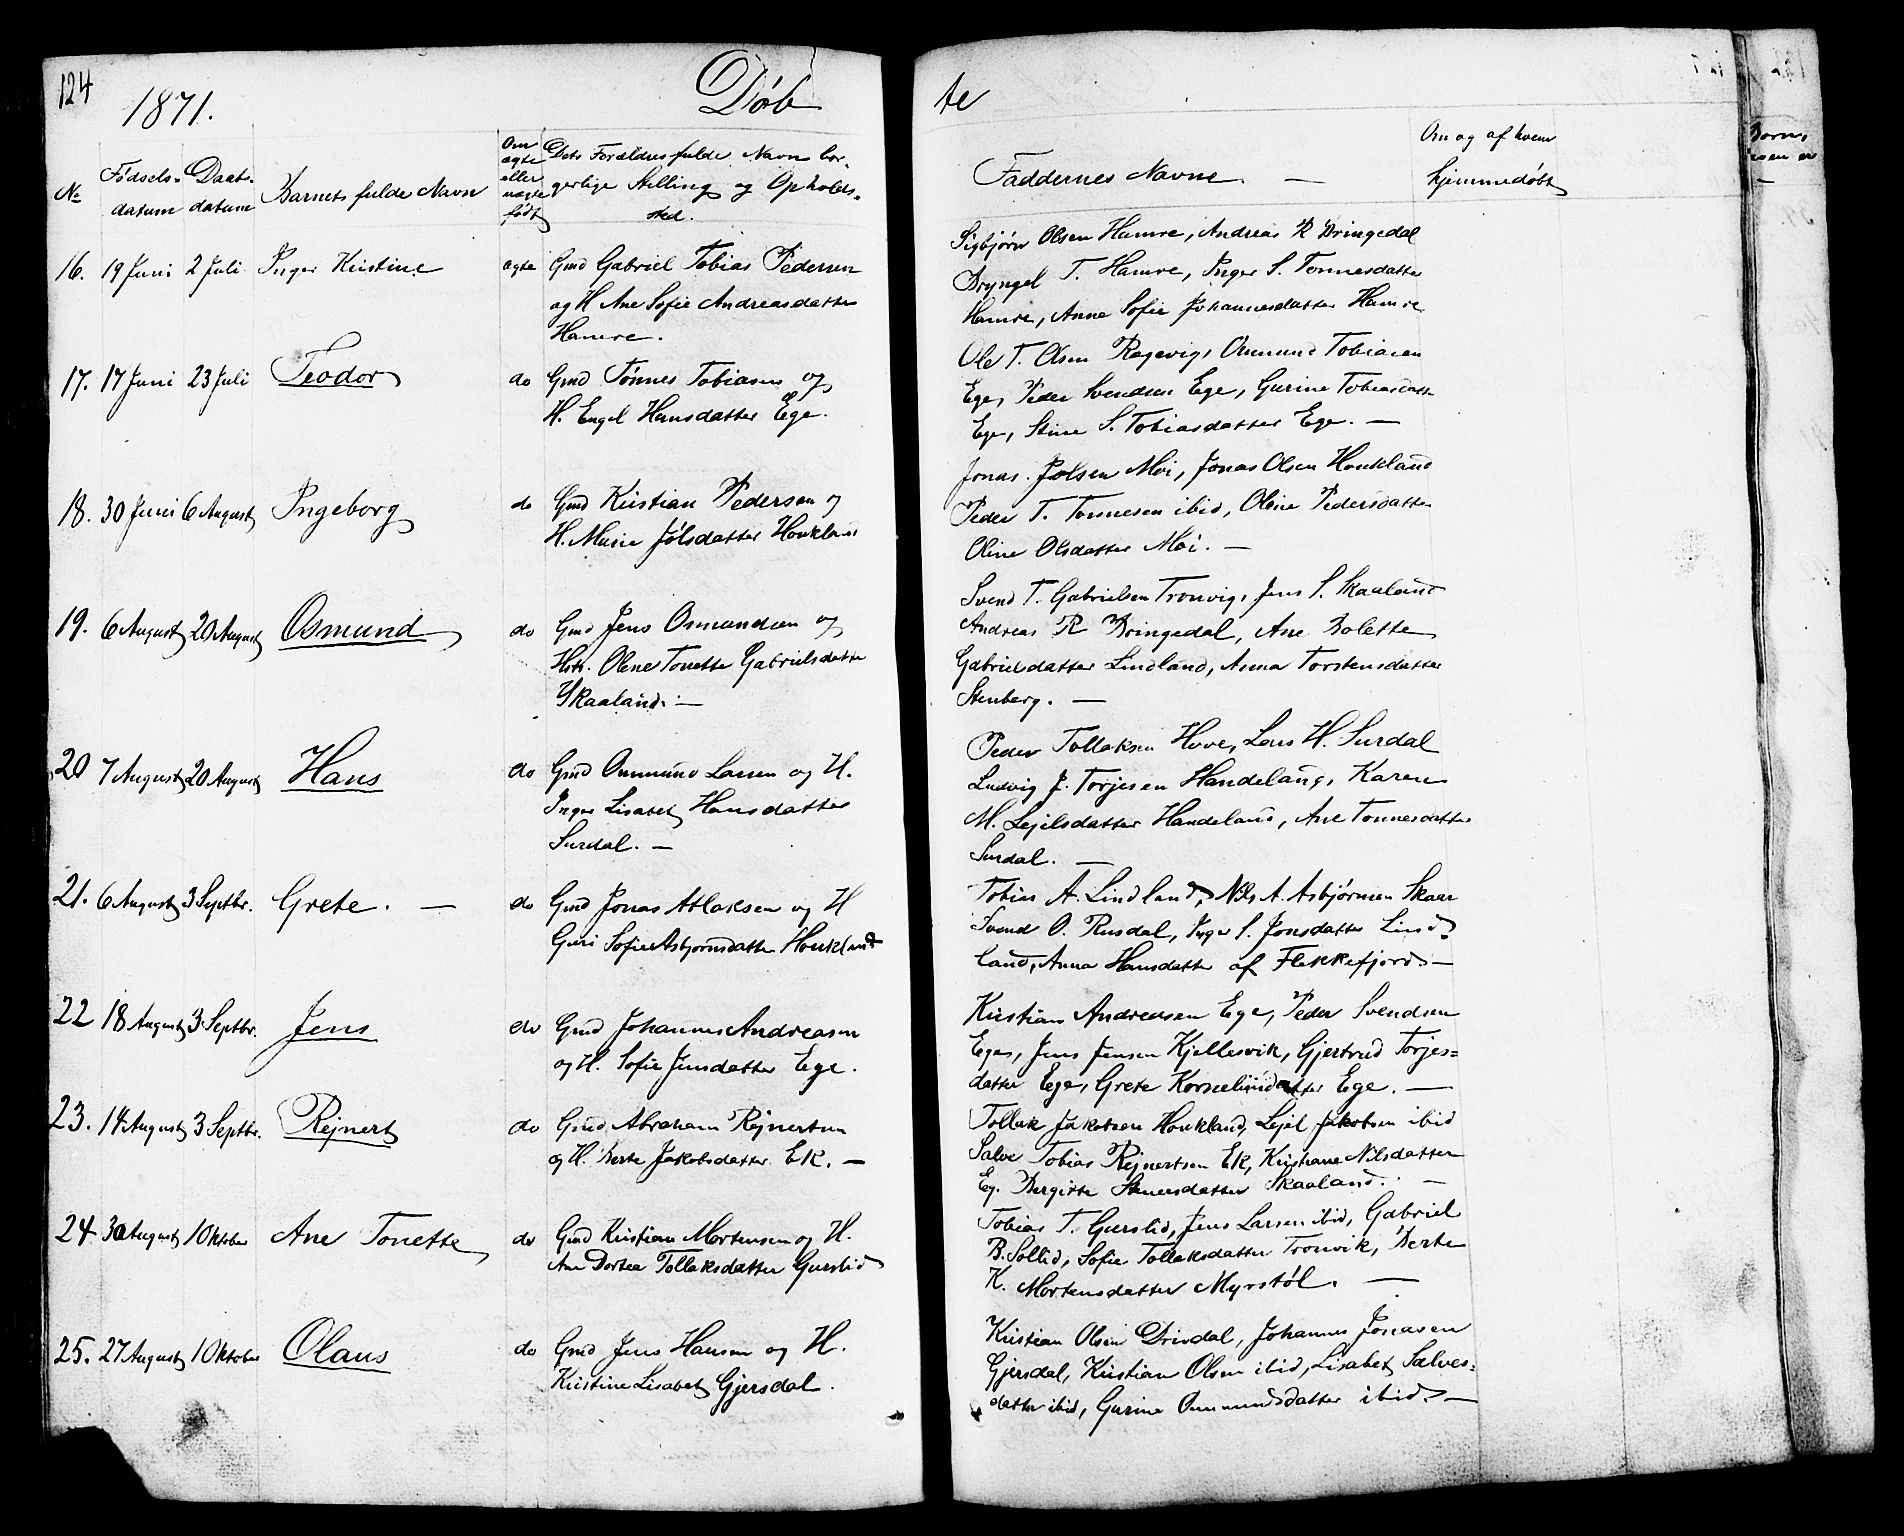 124
1871.
Døbte
No
Fødselsdatum
Daabsdatum
Barnets fulde Navn
Om ægte eller uægte født
Dets Forældres fulde Navn borgerlige Stilling og Opholdssted.
Faddernes Navne. —
Om og af hvem hjemmedøbt
16. 19 Juni 2 Juli Inger Kristine ægte
Gmd Gabriel Tobias Pedersen
og H Ane Sofie Andreasdatter
Hamre.
Sigbjørn Olsen Hamre, Andreas R Bringedal
Bryngel T. Hamre, Inger S. Tønnesdatter
Hamre, Anne Sofie Johannesdatter Hamre
17. 17 Juni 23 Juli Teodor do
Gmd Tønnes Tobiasen og
H. Engel Hansdatter Ege.
Ole T. Olsen Røgevig, Ommund Tobiasen
Ege, Peder Svendsen Ege, Gurine Tobiasdatt
Ege, Stine S. Tobiasdatter Ege. —
18. 30 Juni 6 August Ingeborg do
Gmd Kristian Pedersen og
H. Marie Jølsdatter Houkland
Jonas Jølsen Moi, Jonas Olsen Houkland
Peder T. Tønnesen ibid, Oline Pedersdatter
Oline Olsdatter Moi. —
19. 6 August 20 August Osmund do
Gmd Jens Osmundsen og
Hstr. Olene Tonette Gabrielsdatter
Skaaland. —
Svend T. Gabrielsen Tronvig, Jens S. Skaaland
Andreas R Bringedal, Ane Bolette
Gabrielsdatter Lindland, Anna Torstensdatter
Stenberg. —
20 7 August 20 August Hans do
Gmd Ommund Larsen og H.
Inger Lisabet Hansdatter
Surdal. —
Peder Tollaksen Hove, Lars H. Surdal
Ludvig J. Torjesen Handeland, Karen
M. Lejelsdatter Handeland, Ane Tønnesdatter
Surdal. —
21. 6 August 3 Septbr. Grete. — do
Gmd Jonas Atlaksen og H
Guri Sofie Asbjørnsdatter Houkland
Tobias A. Lindland, Nils A. Asbjørnsen Skaar
Svend O. Rusdal, Inger S. Jonsdatter Lind-
land, Anna Hansdatter af Flekkefjord —
22 18 August 3 Septbr. Jens do
Gmd Johannes Andreasen
og H. Sofie Jensdatter Ege.
Kristian Andreasen Ege, Peder Svendsen
Ege, Jens Jensen Kjellesvik, Gjertrud Torjes=
datter Ege, Grete Korneliusdatter Ege. —
23. 14 August 3 Septbr. Rejnert do
Gmd. Abraham Rejnertsen
og H. Berte Jakobsdatter Ek. —
Tollak Jakobsen Houkland, Lejel Jakobsen ibid
Salve Tobias Rejnertsen Ek, Kristiane Nilsdatter
Eg. Bergitte Steuersdatter Skaaland. —
24 30 August 1 Oktober Ane Tonette do
Gmd Kristian Mortensen og H.
Ane Dortea Tollaksdatter Gurslid
Tobias T. Gurslid, Jens Larsen ibid, Gabriel
B. Sollid, Sofie Tollaksdatter Tronvik, Berte
K. Mortensdatter Myrstøl. —
25. 27 August 1 Oktober Olaus do
Gmd Jens Hansen og H.
Kristine Lisabet Gjersdal.
Kristian Olsen Drivdal, Johannes Jonasen
Gjersdal, Kristian Olsen ibid, Lisabet Salves=
datter ibid, Gurine Ommundsdatter ibid. —